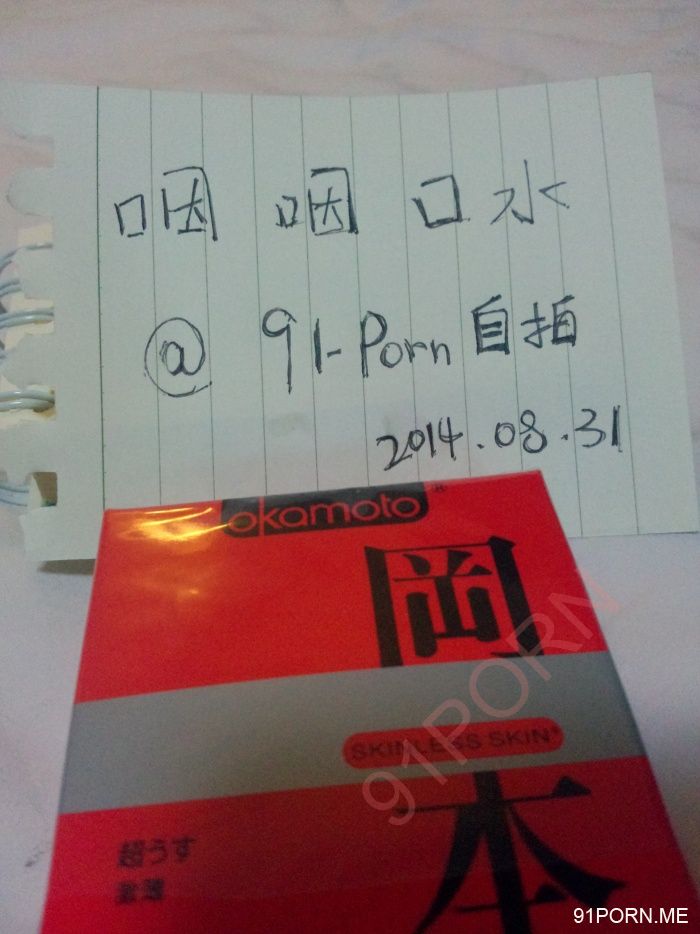 咽咽口水
@ 91-Porn 自拍
2014.08.31
okamoto®
岡本
SKINLESS SKIN®
超うす
激薄
91PORN
91PORN.ME